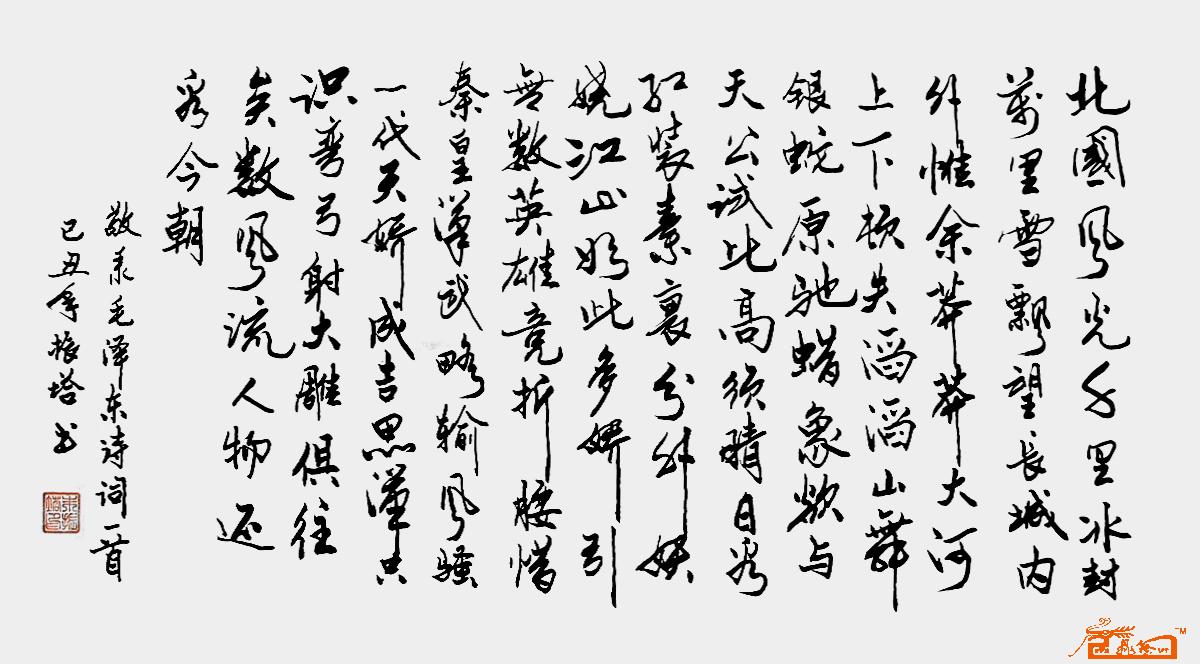 北國风光千里冰封
萬里雪飘望长城内
外惟余莽莽大河
上下顿失滔滔山舞
银蛇原驰蜡象欲与
天公试比高须晴日看
红装素裹分外妖
娆江山如此多娇引
無数英雄竞折腰惜
秦皇漢武略输风骚
一代天娇成吉思漢只
识弯弓射大雕俱往
矣数风流人物还
看今朝
敬录毛泽东诗词一首
己丑年振塔书